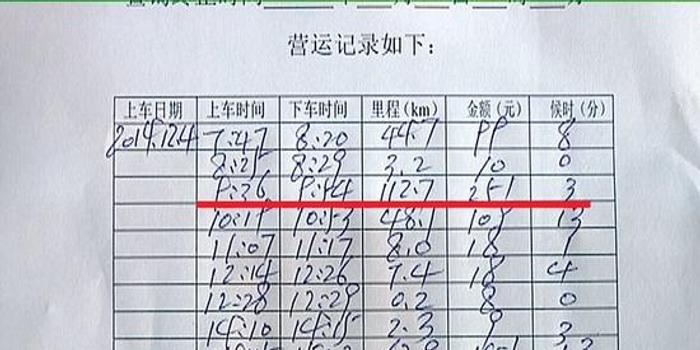 营运记录如下：
上车日期 上车时间 下车时间 里程(km) 金额(元) 候时(分)
2014.12.4 7:47 8:20 44.7 99 8
8:25 8:29 3.2 10 0
9:36 9:44 112.7 251 3
10:15 10:53 48.1 109 13
11:07 11:17 8.0 18 1
12:14 12:26 7.4 18 4
12:28 12:29 0.2 8 0
14:10 14:15 2.3 9 3